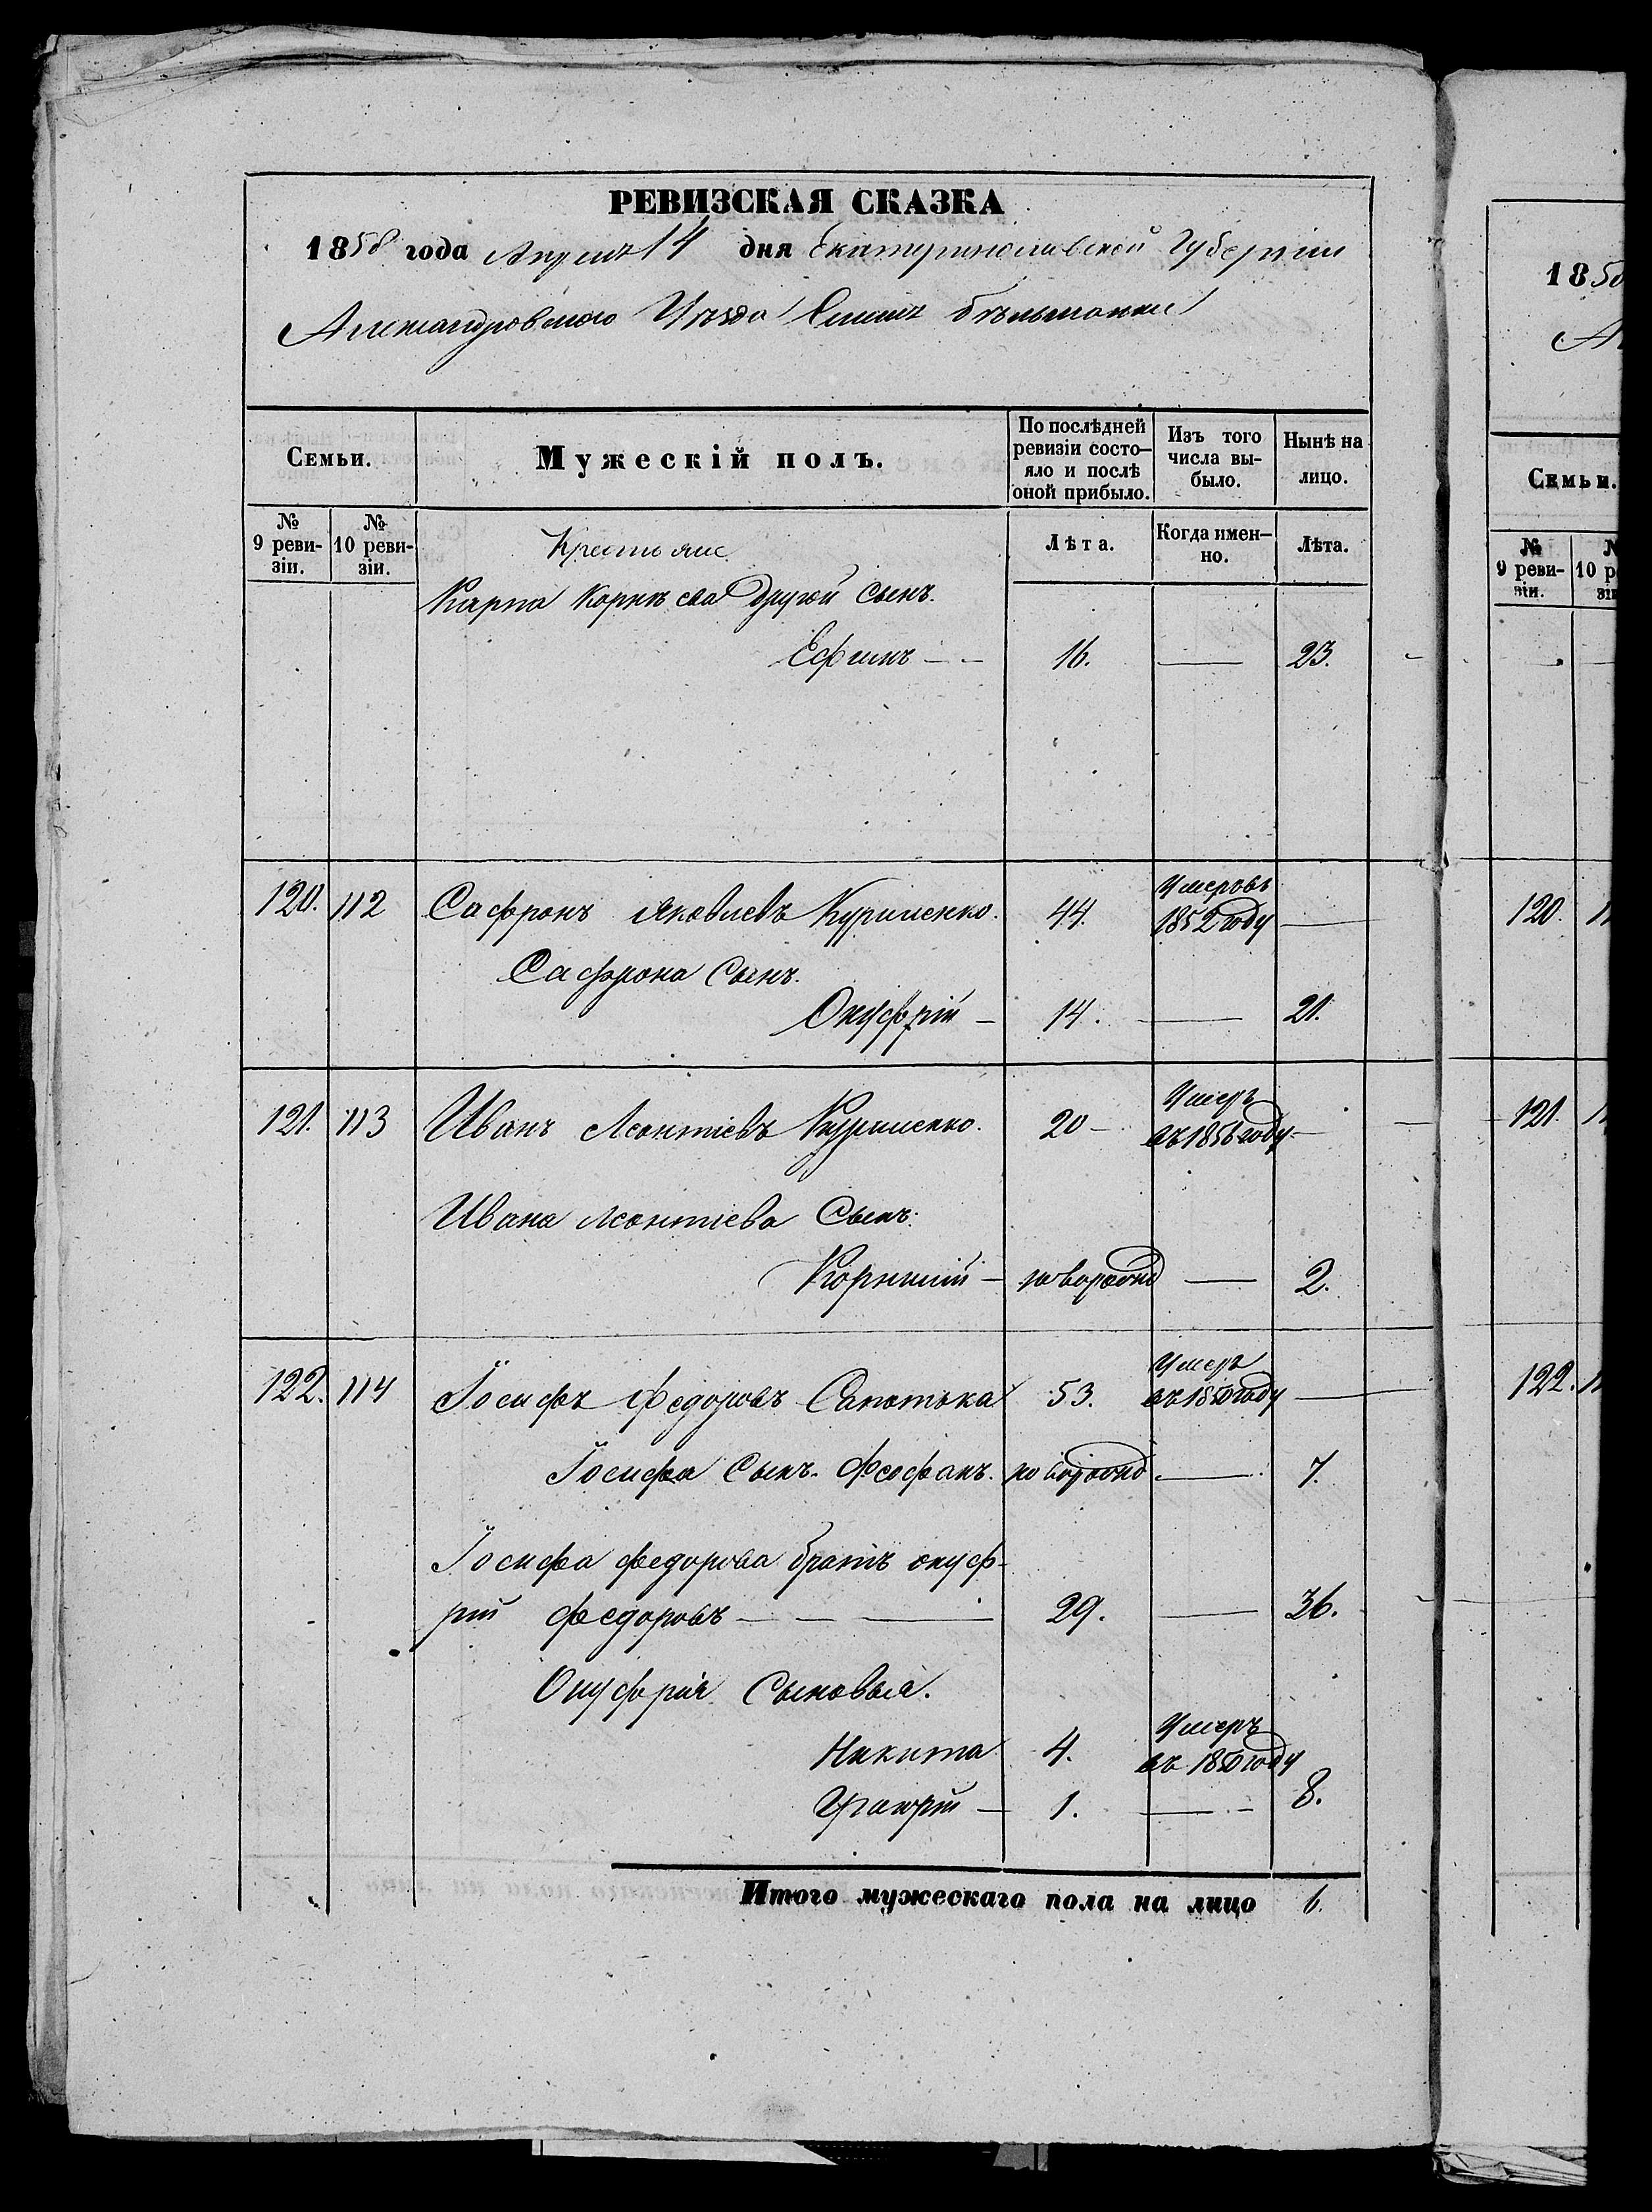 РЕВИЗСКАЯ СКАЗКА
1858 года Апреля 14 дня Екатеринославской Губернии
Александровского Уезда Бельманки
Семьи. Мужескій полъ. По послѣдней ревизіи состояло и послѣ оной прибыло. Изъ того числа выбыло. Нынѣ на лицо.
№ 9 ревизіи. № 10 ревизіи. Крестьяне Лѣта. Когда именно. Лѣта.
Карпа другой Сынъ.
Ефимъ 16. — 23.
120. 112 Сафронъ Яковлевъ Куриленко. 44. Умеръ въ 1852 году —
Сафрона Сынъ.
Онуфрій — 14. — 21.
121. 113 Иванъ Леонтіевъ Куриленко. 20 — Умеръ въ 1856 году —
Ивана Леонтіева Сынъ.
Корнилій — новорожд — 2.
122. 114 Іосифъ Федоровъ 53. Умеръ въ 1850 году —
Іосифа Сынъ Феофанъ. новорожд — 7.
Іосифа Федорова братъ онуф-
рій Федоровъ — 29. — 36.
Онуфрія Сыновья.
Никита 4. Умеръ въ 1850 году
Григорій — 1. — 8.
Итого мужескаго пола на лицо 6.
1858
А
Семьи.
№ 9 ревизіи. 10
120.
121.
122.